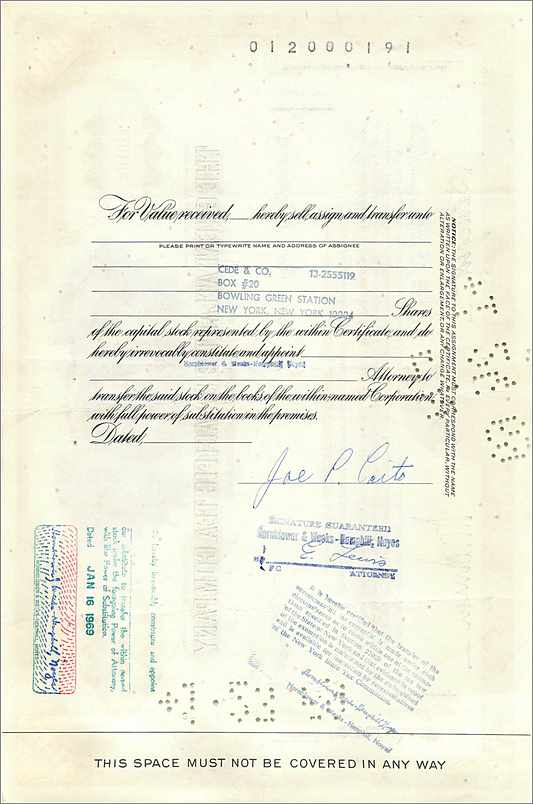 012000191
For Value received, hereby sell, assign, and transfer unto
PLEASE PRINT OR TYPEWRITE NAME AND ADDRESS OF ASSIGNEE
CEDE & CO. 13-2555119
BOX #20
BOWLING GREEN STATION
NEW YORK, NEW YORK 10004 Shares
of the capital stock represented by the within Certificate, and do
hereby irrevocably constitute and appoint
Hornblower & Weeks-Hemphill, Noyes
Attorney to
transfer the said stock on the books of the within-named Corporation,
with full power of substitution in the premises.
Dated,
NOTICE: THE SIGNATURE TO THIS ASSIGNMENT MUST CORRESPOND WITH THE NAME
AS WRITTEN UPON THE FACE OF THE CERTIFICATE, IN EVERY PARTICULAR, WITHOUT
ALTERATION OR ENLARGEMENT, OR ANY CHANGE WHATEVER.
Joe P.
SIGNATURE GUARANTEED
Hornblower & Weeks-Hemphill, Noyes
ATTORNEY
do hereby irrevocably constitute and appoint
our substitute to transfer the within named
stock under the foregoing Power of Attorney,
with like Power of Substitution.
Dated JAN 16 1969
Hornblower & Weeks-Hemphill, Noyes
It is hereby certified that the transfer of the
of the New York State Tax Commission.
Hornblower & Weeks-Hemphill, Noyes
THIS SPACE MUST NOT BE COVERED IN ANY WAY